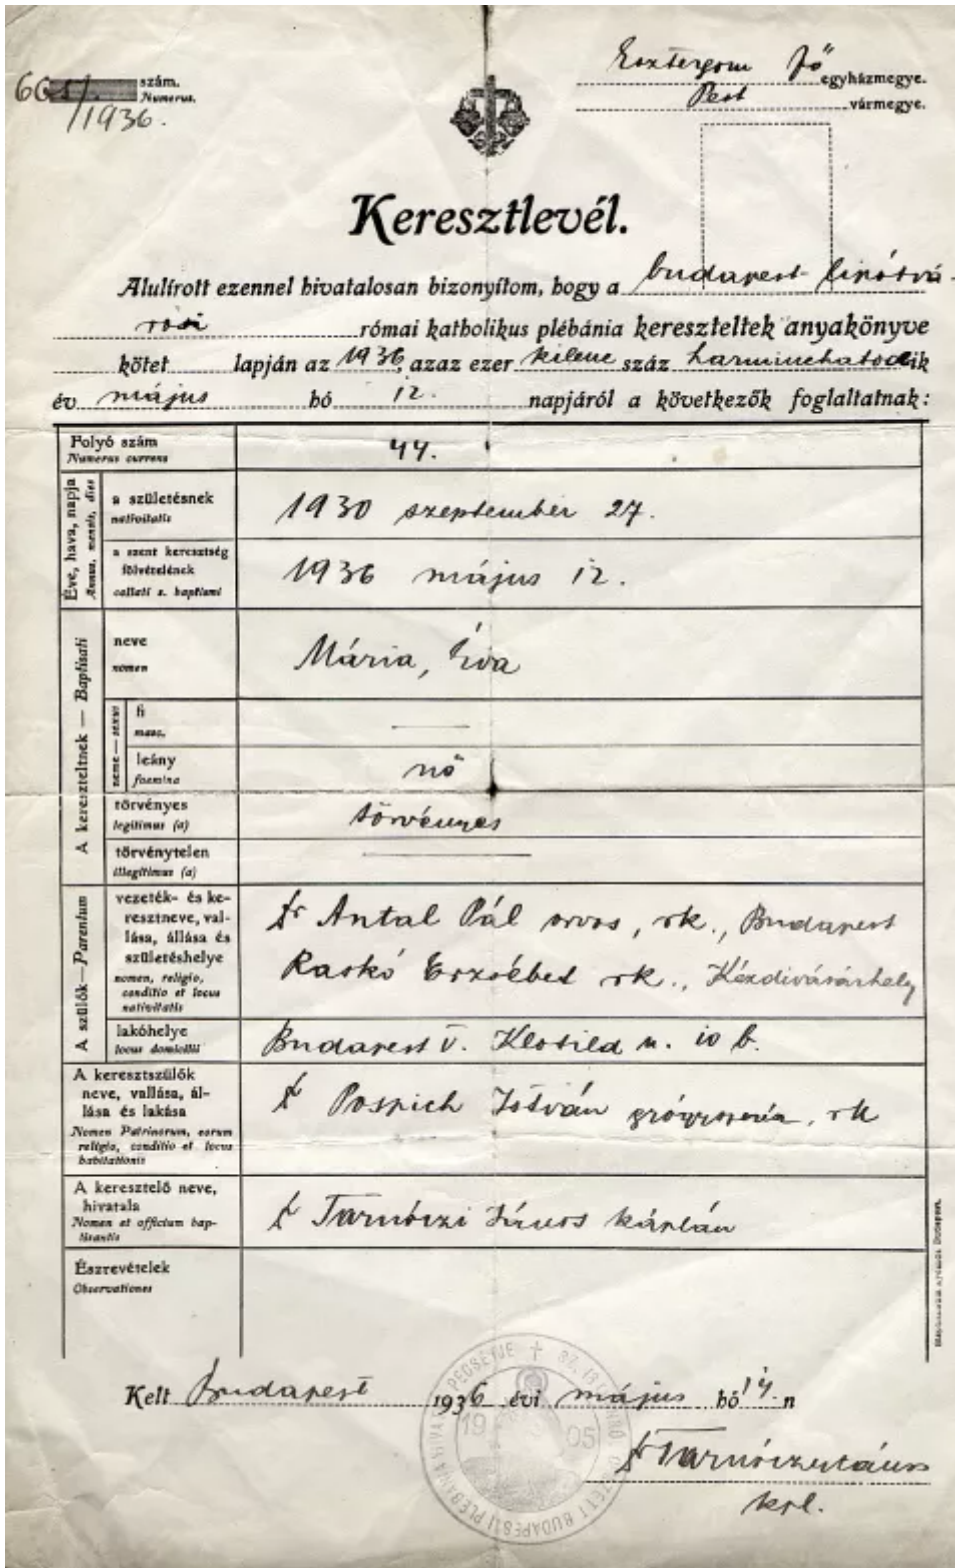 szám.
Numerus.
/1936.
Esztergom fő egyházmegye.
Pest vármegye.
Keresztlevél.
Alulírott ezennel hivatalosan bizonyítom, hogy a budapest-lipótvá-
rosi római katholikus plébánia kereszteltek anyakönyve
kötet lapján az 1936, azaz ezer kilenc száz harminchatodik
év május hó 12. napjáról a következők foglaltatnak:
Folyó szám
Numerus currens
44.
Éve, hava, napja
Annus, mensis, dies
a születésnek
nativitatis
1930 szeptember 27.
a szent keresztség
fölvételének
collati s. baptismi
1936 május 12.
A kereszteltnek — Baptisati
neve
nomen
Mária, Éva
neme — sexus
fi
masc.
leány
foemina
nő
törvényes
legitimus (a)
törvényes
törvénytelen
illegitimus (a)
A szülők — Parentum
vezeték- és ke-
resztneve, val-
lása, állása és
születéshelye
nomen, religio,
conditio et locus
nativitatis
dr Antal Pál orvos, rk., Budapest
Raskó Erzsébet rk., Kézdivásárhely
lakóhelye
locus domicilii
Budapest V. Klotild u. 10 b.
A keresztszülők
neve, vallása, ál-
lása és lakása
Nomen Patrinorum, eorum
religio, conditio et locus
habitationis
dr Pospich István rk
A keresztelő neve,
hivatala
Nomen et officium bap-
tisantis
dr Tarnóczi János káplán
Észrevételek
Observationes
Kelt Budapest 1936 évi május hó 14. n
19 05
dr Tarnóczi János
kpl.